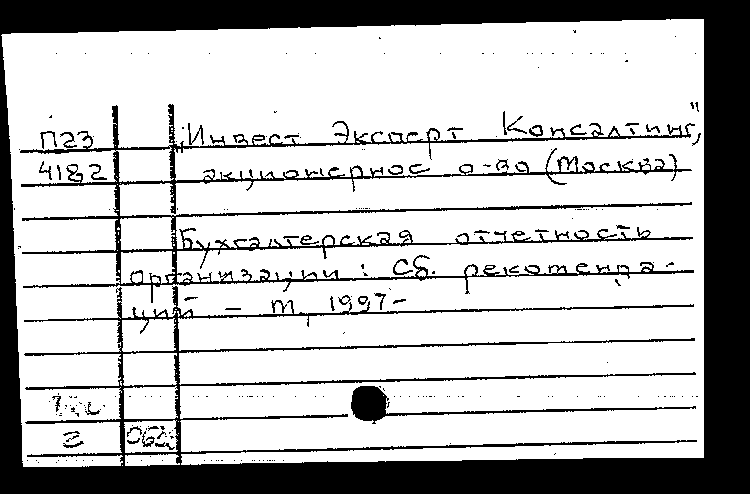 П23 „Инвест Эксперт Консалтинг",
4182 акционерное о-во (Москва)
Бухгалтерская отчетность
организации: Сб. рекоменда-
ций – М, 1997-
2